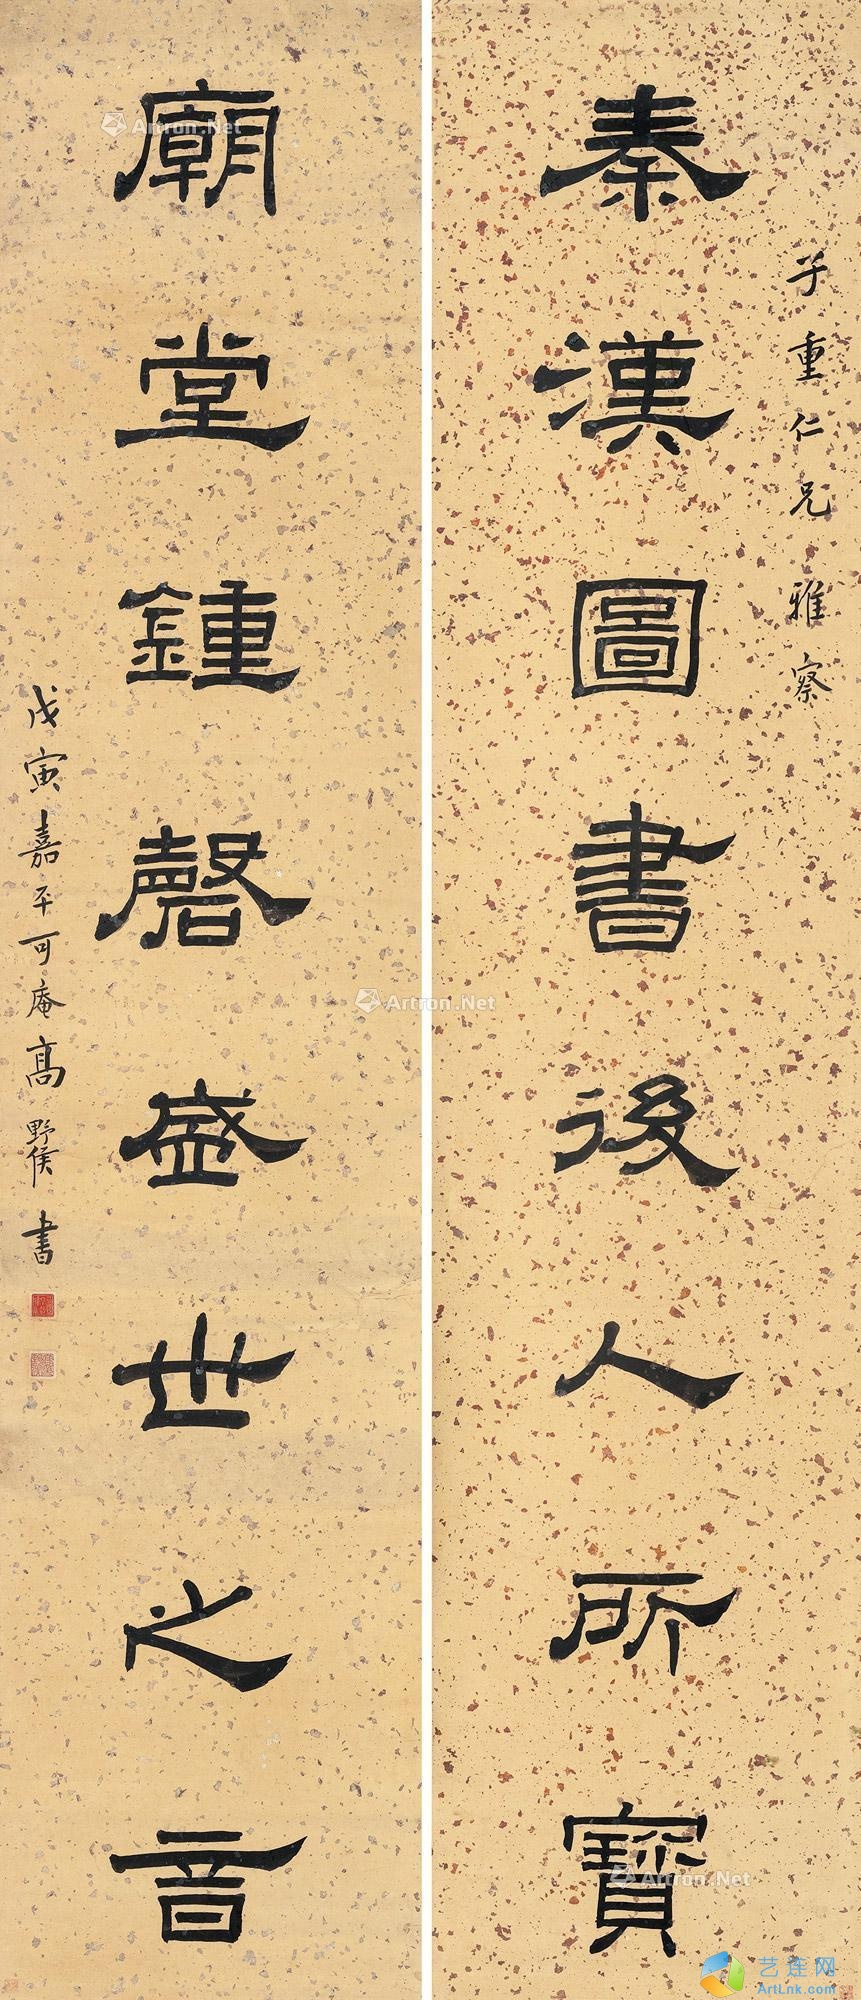 子重仁兄雅察
秦漢圖書後人所寶
廟堂鍾磬盛世之音
戊寅嘉平可庵高野侯書
Artron.Net
Artron.Net
Artron.Net
艺连网
ArtLnk.com